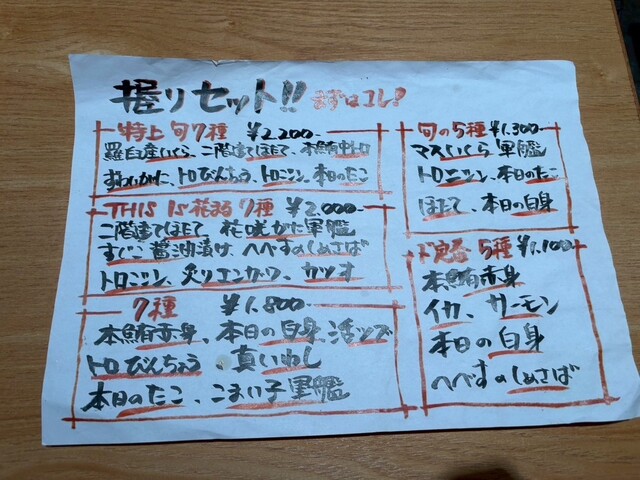 握りセット!! まずはコレ!
特上 旬7種 ¥2,200-
羅臼産いくら、二階建てほたて、本鮪中トロ
ずわいがに、トロびんちょう、トロニシン、本日のたこ
THIS IS 花まる 7種 ¥2,000-
二階建てほたて、花咲がに軍艦
すじこ醤油漬け、へべすのしめさば
トロニシン、炙りエンガワ、カツオ
7種 ¥1,800-
本鮪赤身、本日の白身、活ツブ
トロびんちょう、真いわし
本日のたこ、こまい子軍艦
旬の5種 ¥1,300-
マスいくら軍艦
トロニシン、本日のたこ
ほたて、本日の白身
ド定番 5種 ¥1,100-
本鮪赤身
イカ、サーモン
本日の白身
へべすのしめさば